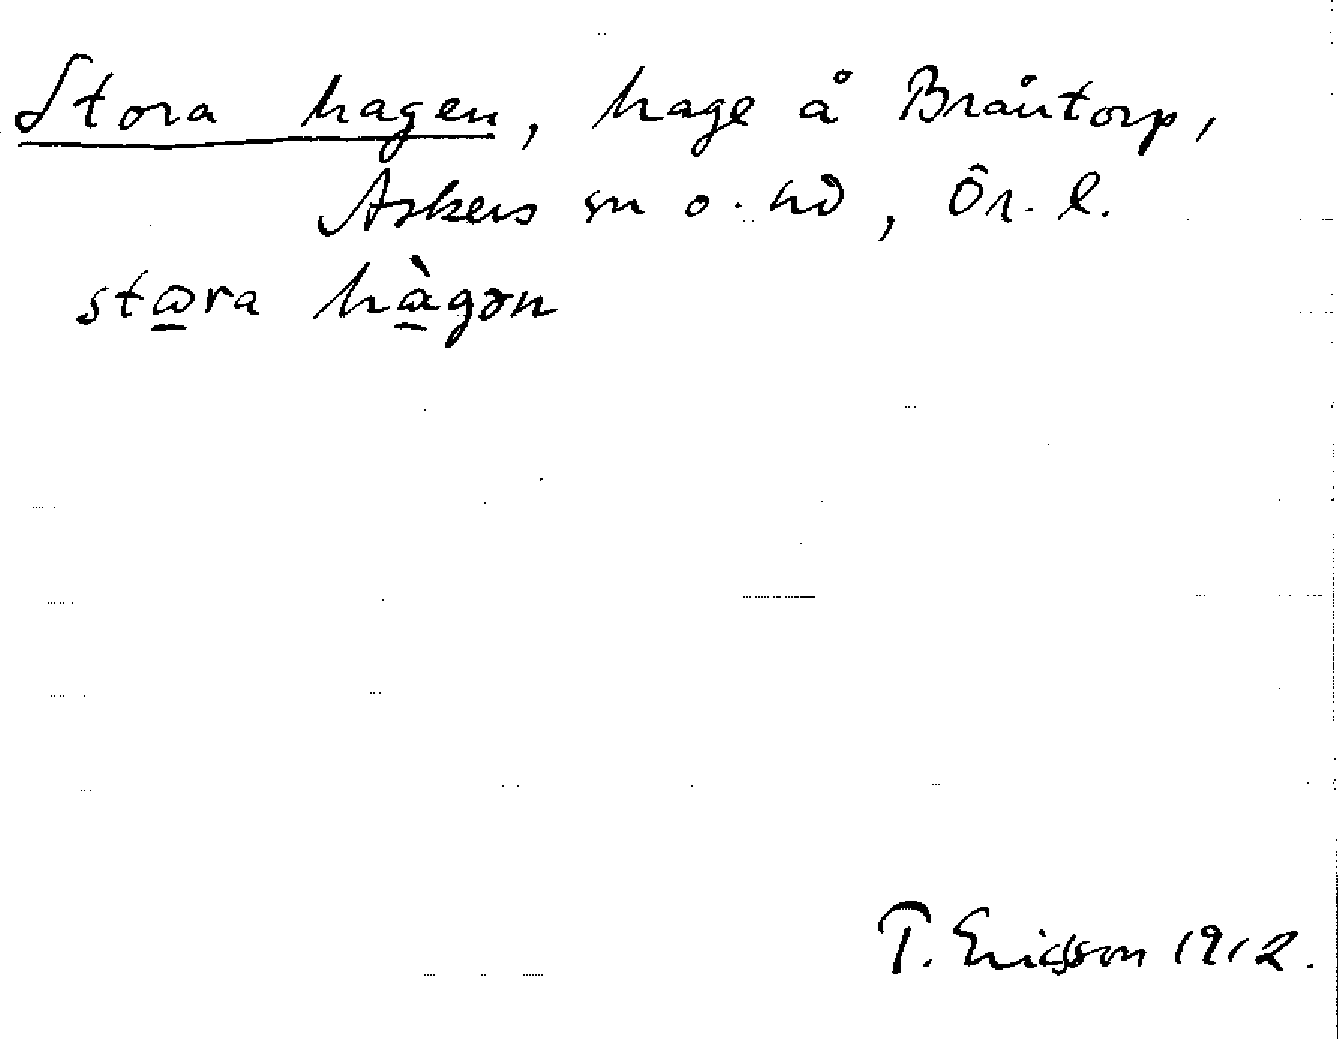 Stora hagen, hage å Bråtorp,
Askers sn o. hd, Ör. l.
stωra hàgən
T. Ericsson 1912.